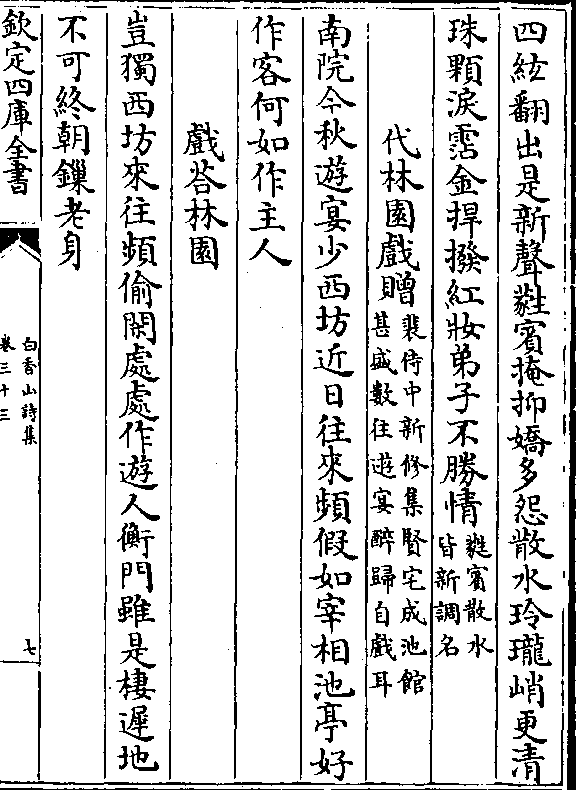 四絃翻出是新聲蕤賓掩抑嬌多怨散水玲瓏峭更清
珠顆淚霑金捍撥紅妝弟子不勝情蕤賓散水
皆新調名
代林園戲贈裴侍中新修集賢宅成池館
甚盛數往遊宴醉歸自戲耳
南院今秋遊宴少西坊近日往來頻假如宰相池亭好
作客何如作主人
戲荅林園
豈獨西坊來往頻偷閑處處作遊人衡門雖是棲遲地
不可終朝鏁老身
欽定四庫全書
白香山詩集
卷三十三
七